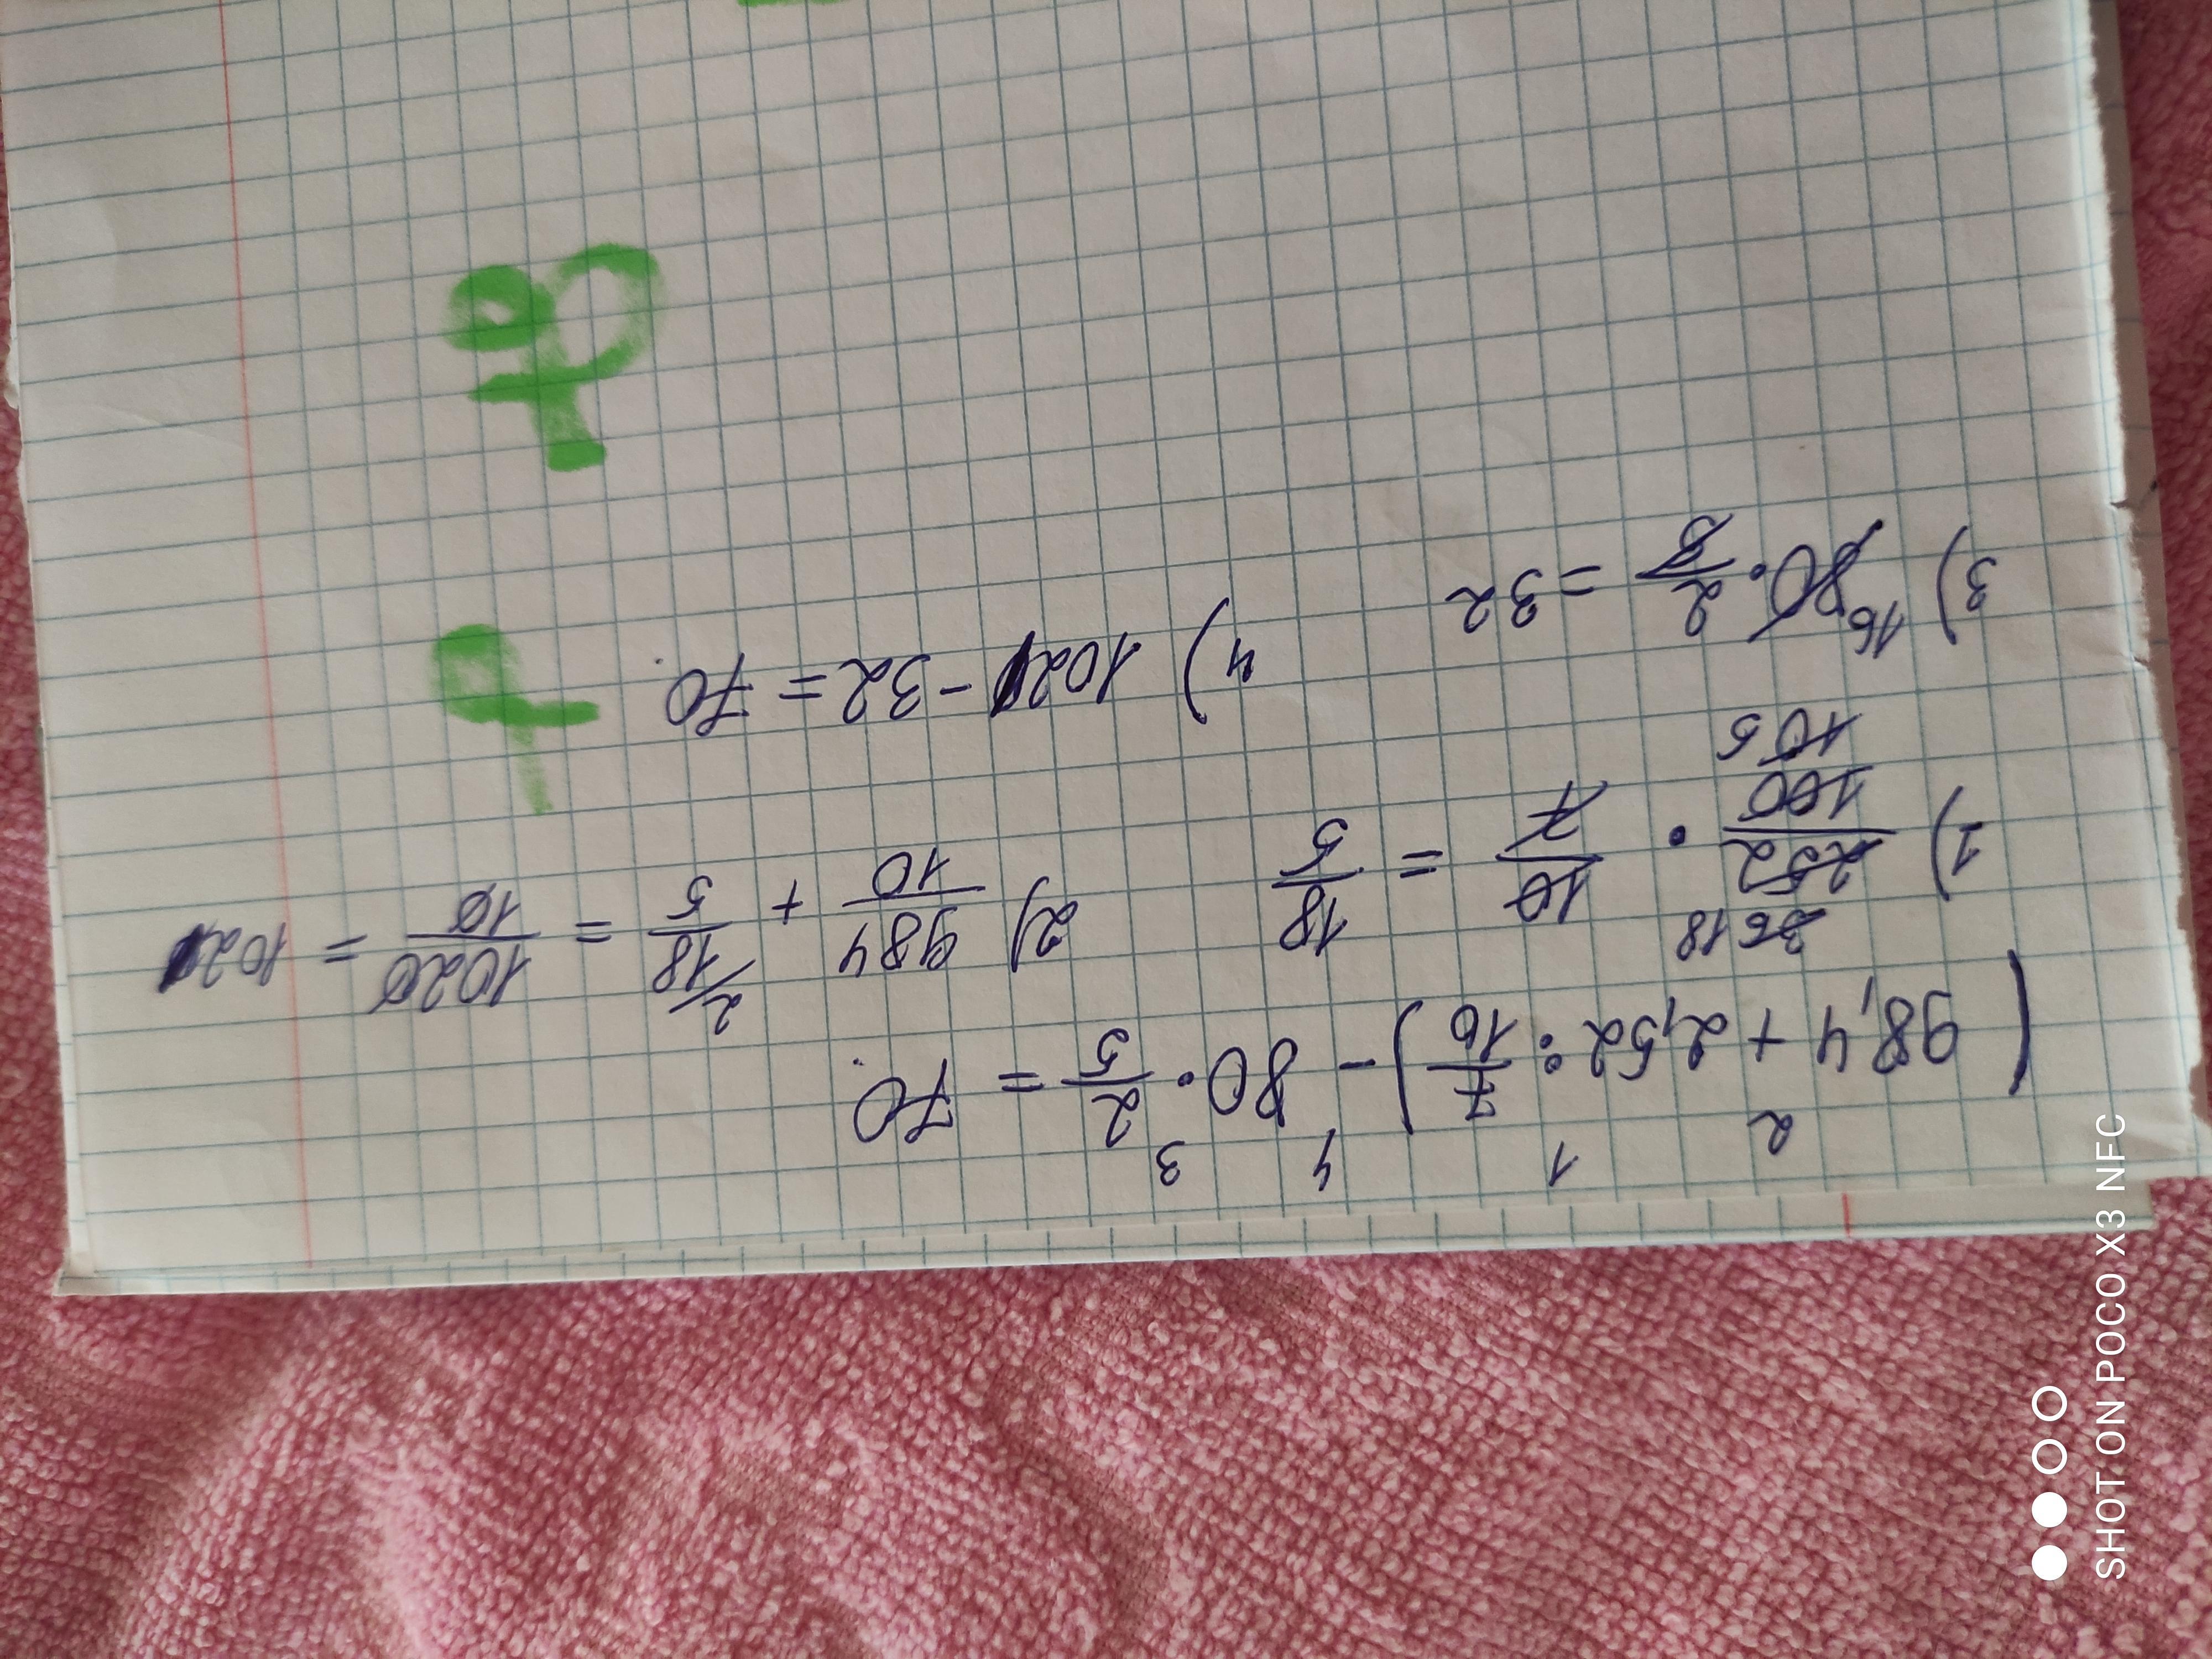 2 1 4 3
(98,4 + 2,52 : 7/10) - 80 · 2/5 = 70.
1) 252/100 · 10/7 = 18/5
36 18
10 5
2) 984/10 + 18/5 = 1020/10 = 102
2
3) 80 · 2/5 = 32
16
4) 102 - 32 = 70.
SHOT ON POCO X3 NFC